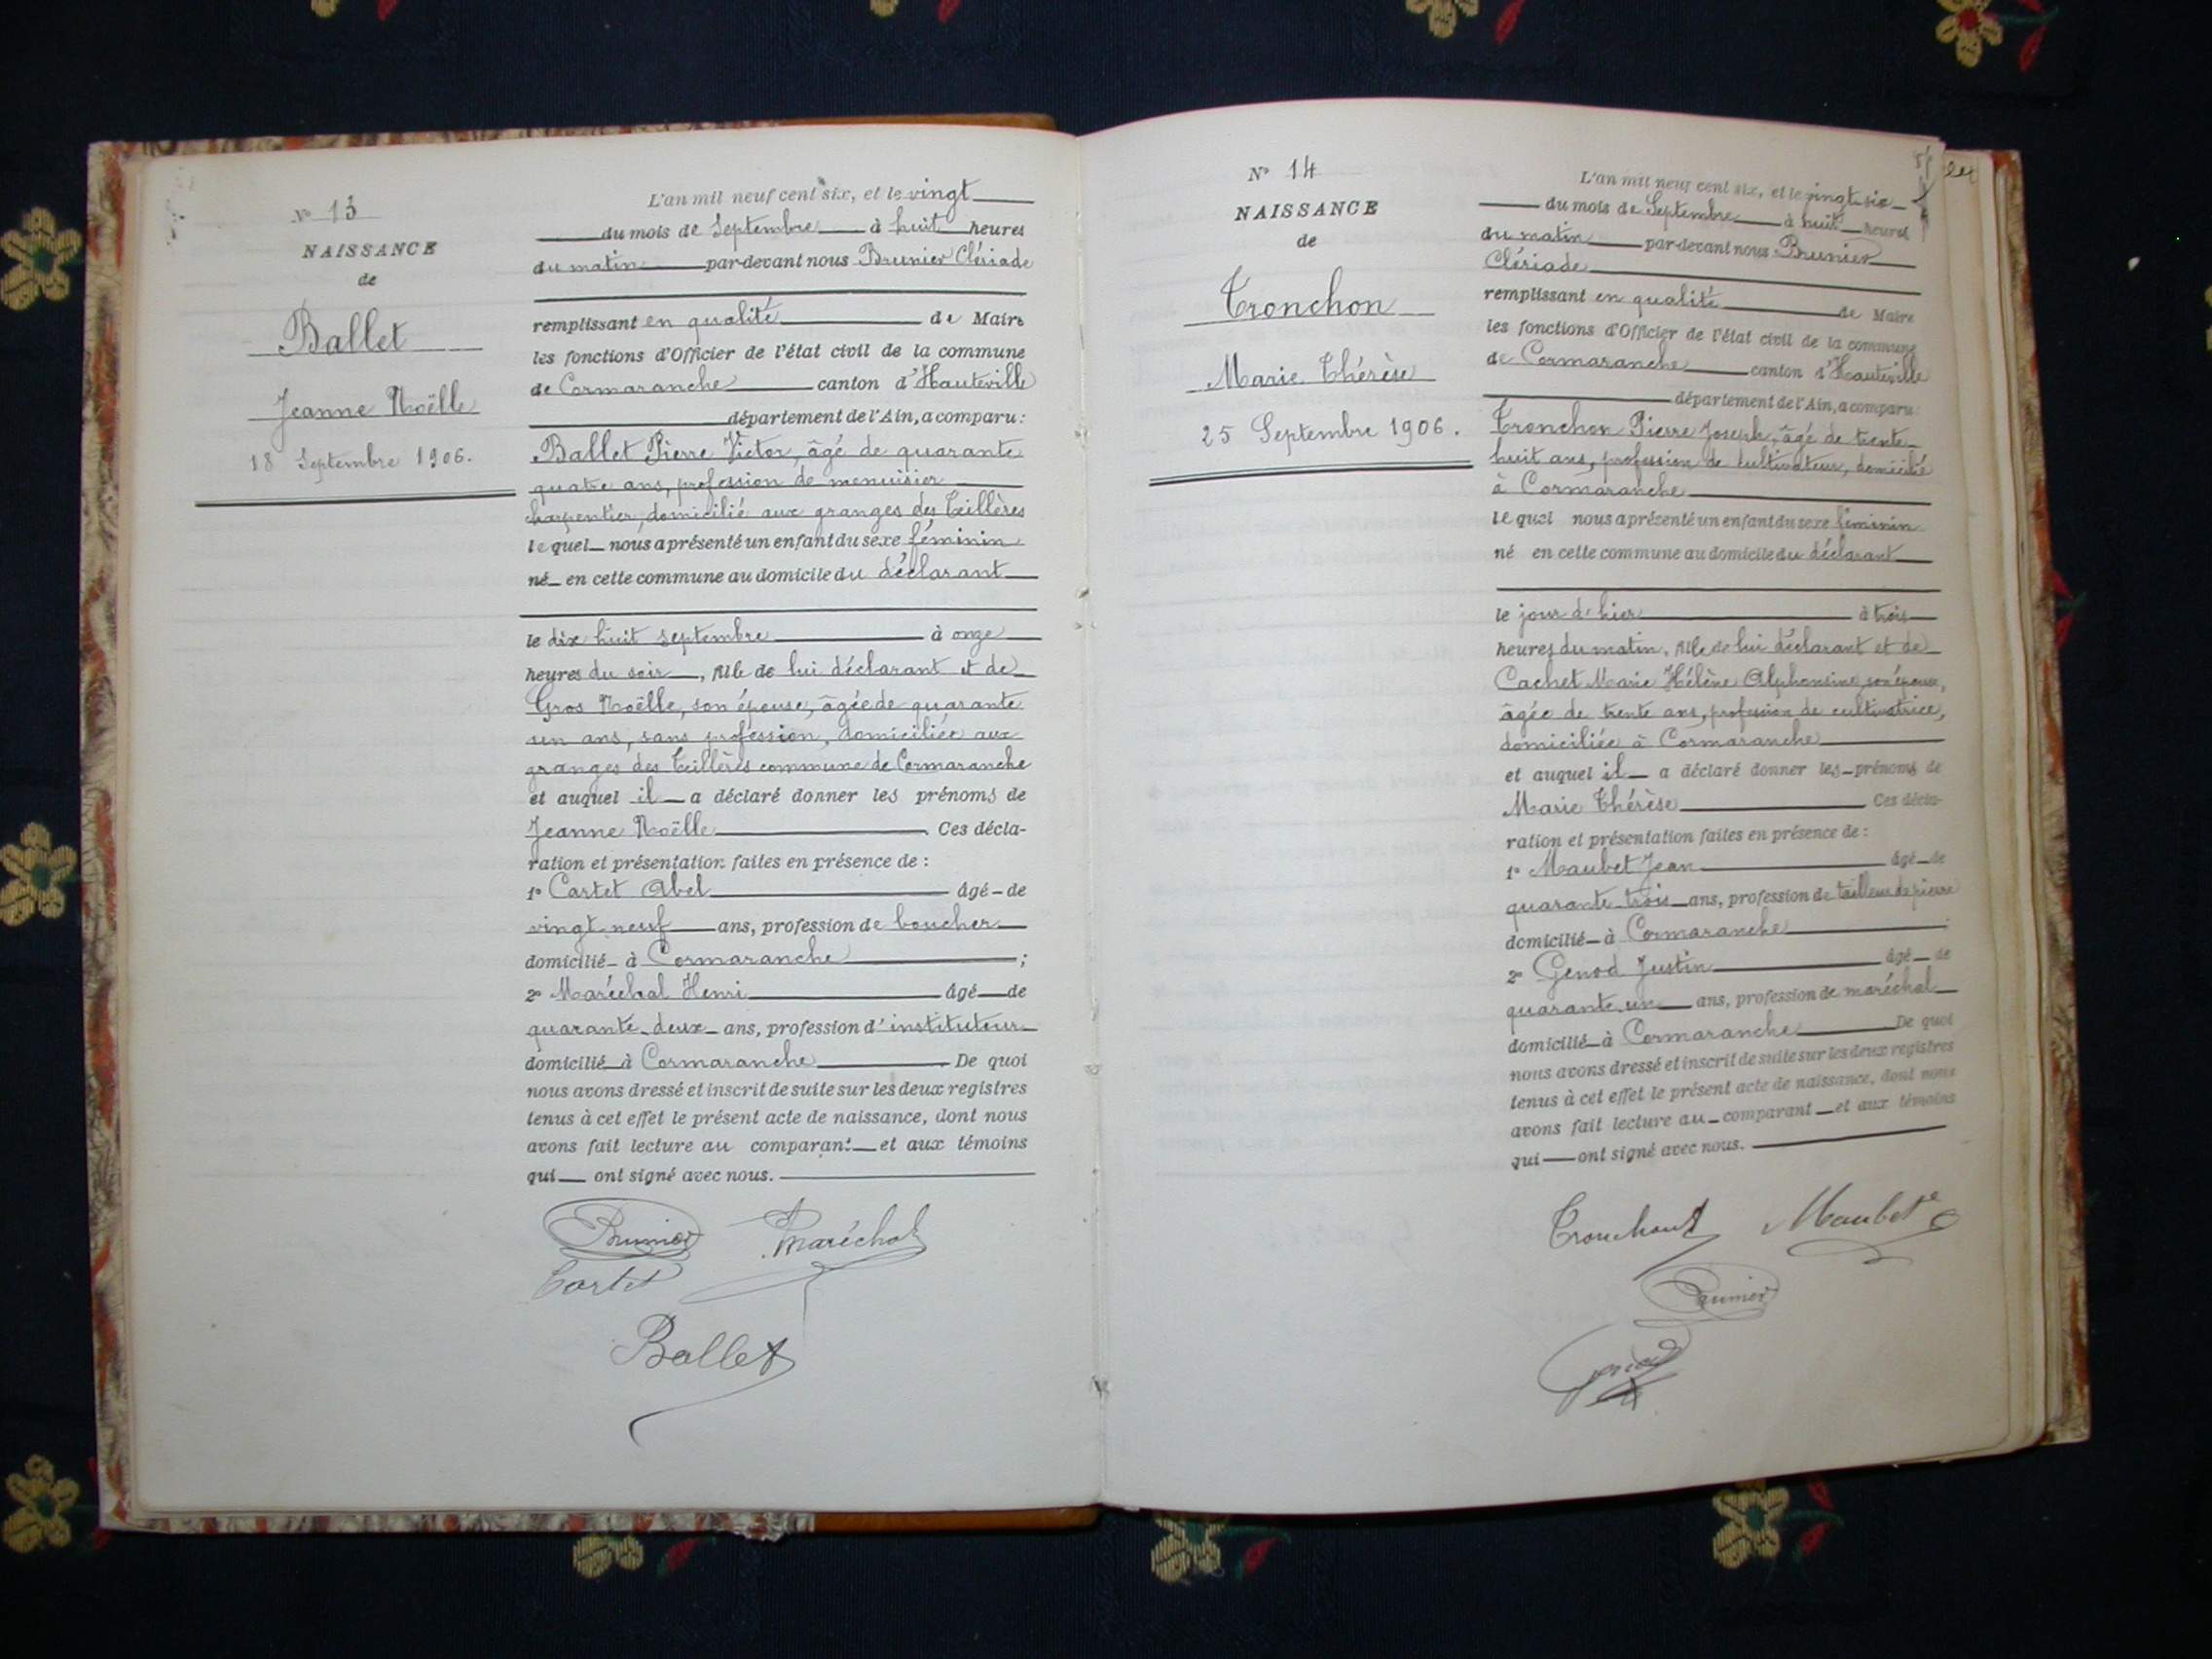 N° 13
NAISSANCE
de
Ballet
Jeanne Noëlle
18 Septembre 1906.
L'an mil neuf cent six, et le vingt
du mois de Septembre à huit heures
du matin par-devant nous Brunier Clériade
remplissant en qualité de Maire
les fonctions d'Officier de l'état civil de la commune
de Cormaranche canton d'Hauteville
département de l'Ain, a comparu:
Ballet Pierre Victor, âgé de quarante
quatre ans, profession de menuisier
charpentier, domicilié aux granges des Teillères
lequel nous a présenté un enfant du sexe féminin
né en cette commune au domicile du déclarant
le dix huit septembre à onze
heures du soir, fille de lui déclarant et de
Gros Noëlle, son épouse, âgée de quarante
un ans, sans profession, domiciliée aux
granges des Teillères commune de Cormaranche
et auquel il a déclaré donner les prénoms de
Jeanne Noëlle Ces décla-
ration et présentation faites en présence de:
1° Cartet Abel âgé de
vingt-neuf ans, profession de boucher
domicilié à Cormaranche ;
2° Maréchal Henri âgé de
quarante-deux ans, profession d'instituteur
domicilié à Cormaranche De quoi
nous avons dressé et inscrit de suite sur les deux registres
tenus à cet effet le présent acte de naissance, dont nous
avons fait lecture au comparant et aux témoins
qui ont signé avec nous.
Brunier Maréchal
Cartet
Ballet
N° 14
NAISSANCE
de
Tronchon
Marie Thérèse
25 Septembre 1906.
L'an mil neuf cent six, et le vingt-six
du mois de Septembre à huit heures
du matin par-devant nous Brunier
Clériade
remplissant en qualité de Maire
les fonctions d'Officier de l'état civil de la commune
de Cormaranche canton d'Hauteville
département de l'Ain, a comparu:
Tronchon Pierre Joseph, âgé de trente
huit ans, profession de cultivateur, domicilié
à Cormaranche
lequel nous a présenté un enfant du sexe féminin
né en cette commune au domicile du déclarant
le jour d'hier à trois
heures du matin, fille de lui déclarant et de
Cachet Marie Hélène Alphonsine, son épouse,
âgée de trente ans, profession de cultivatrice,
domiciliée à Cormaranche
et auquel il a déclaré donner les prénoms de
Marie Thérèse Ces décla-
ration et présentation faites en présence de:
1° Maubet Jean âgé de
quarante-trois ans, profession de tailleur de pierre
domicilié à Cormaranche
2° Genod Justin âgé de
quarante-un ans, profession de maréchal
domicilié à Cormaranche De quoi
nous avons dressé et inscrit de suite sur les deux registres
tenus à cet effet le présent acte de naissance, dont nous
avons fait lecture au comparant et aux témoins
qui ont signé avec nous.
Maubet
Brunier